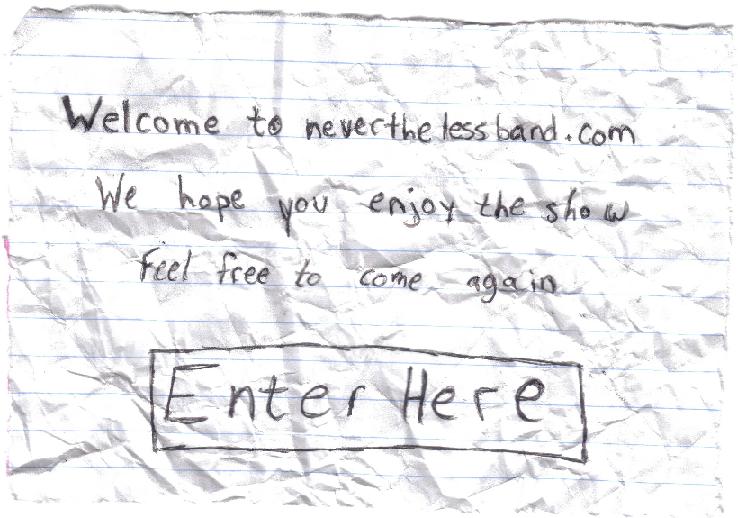 Welcome to neverthelessband.com
We hope you enjoy the show
Feel free to come again
Enter Here